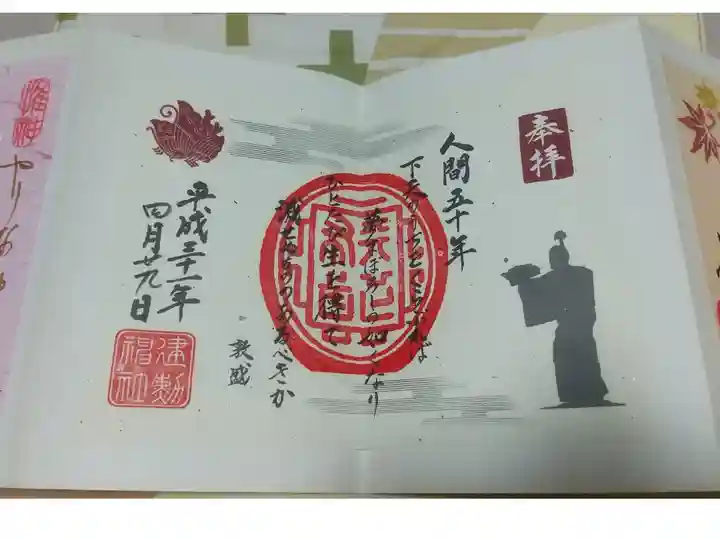 奉拝
人間五十年
下天のうちをくらぶれば
夢まぼろしの如くなり
ひとたび生を得て
滅せぬもののあるべきか
敦盛
天下布武
平成三十一年
四月廿九日
建勲神社